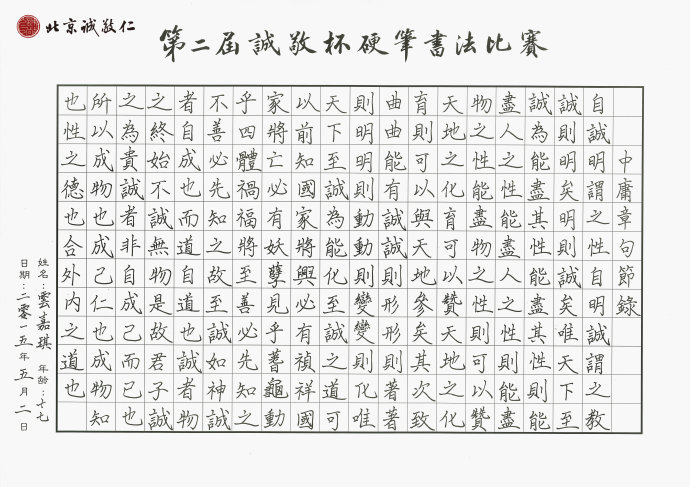 北京誠敬仁
第二屆誠敬杯硬筆書法比賽
中庸章句節錄
自誠明謂之性自明誠謂之教
誠則明矣明則誠矣唯天下至
誠為能盡其性能盡其性則能
盡人之性能盡人之性則能盡
物之性能盡物之性則可以贊
天地之化育可以贊天地之化
育則可以與天地參矣其次致
曲曲能有誠誠則形形則著著
則明明則動動則變變則化唯
天下至誠為能化至誠之道可
以前知國家將興必有禎祥國
家將亡必有妖孽見乎蓍龜動
乎四體禍福將至善必先知之
不善必先知之故至誠如神誠
者自成也而道自道也誠者物
之終始不誠無物是故君子誠
之為貴誠者非自成己而已也
所以成物也成己仁也成物知
也性之德也合外內之道也
姓名：雲嘉琪 年齡：十七
日期：二零一五年五月二日